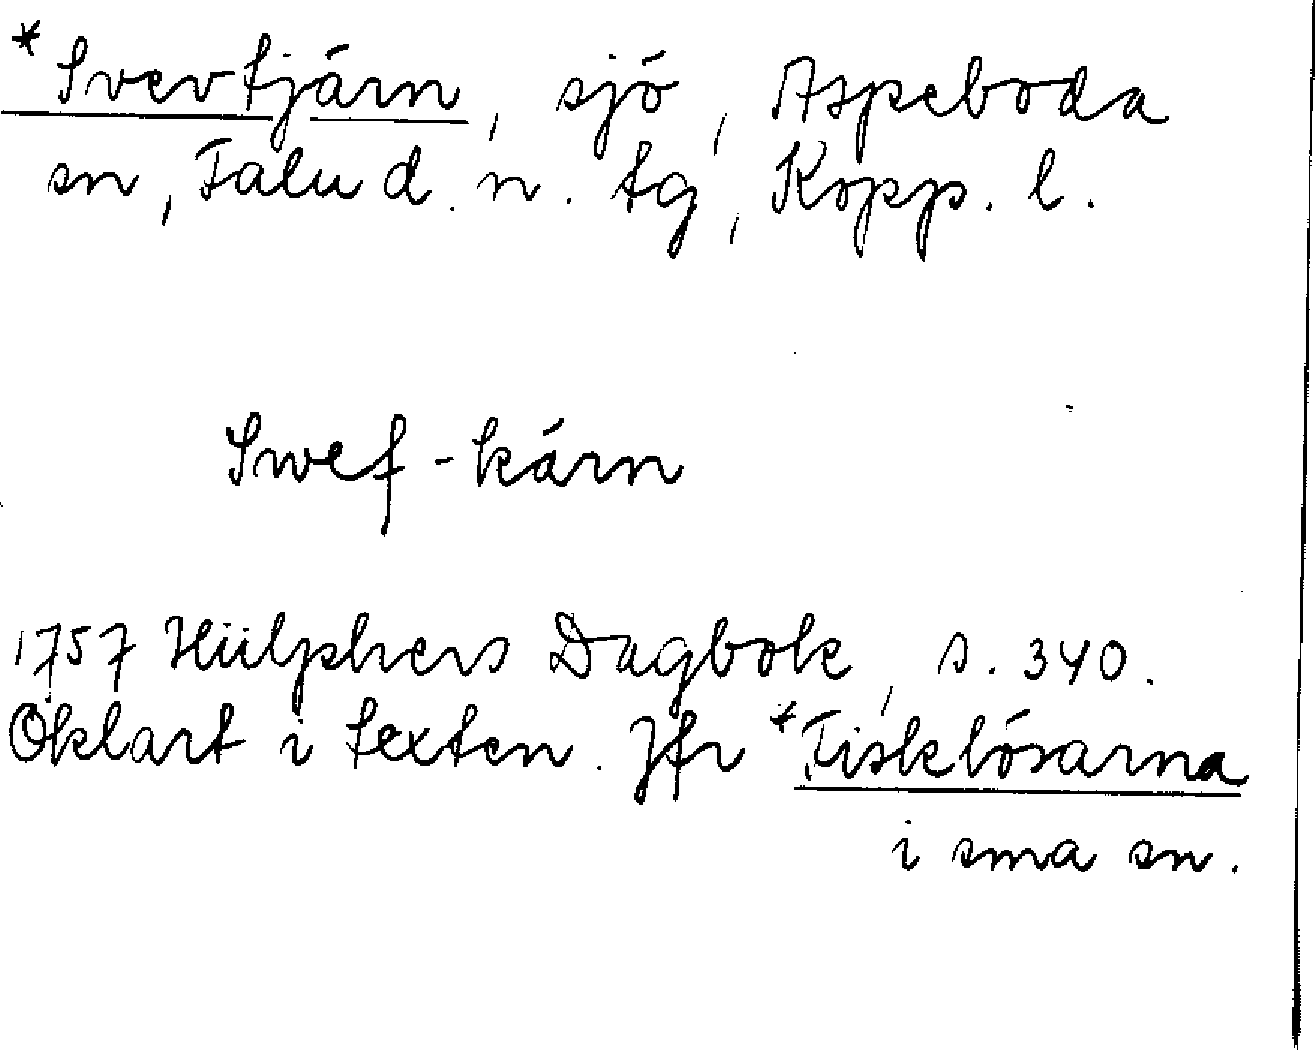 *Svevtjärn, sjö, Aspeboda
sn, Falu d. n. tg, Kopp. l.
Swef-kärn
1757 Hülphers Dagbok, s. 340.
Oklart i texten. Jfr *Fisklösarna
i sma sn.